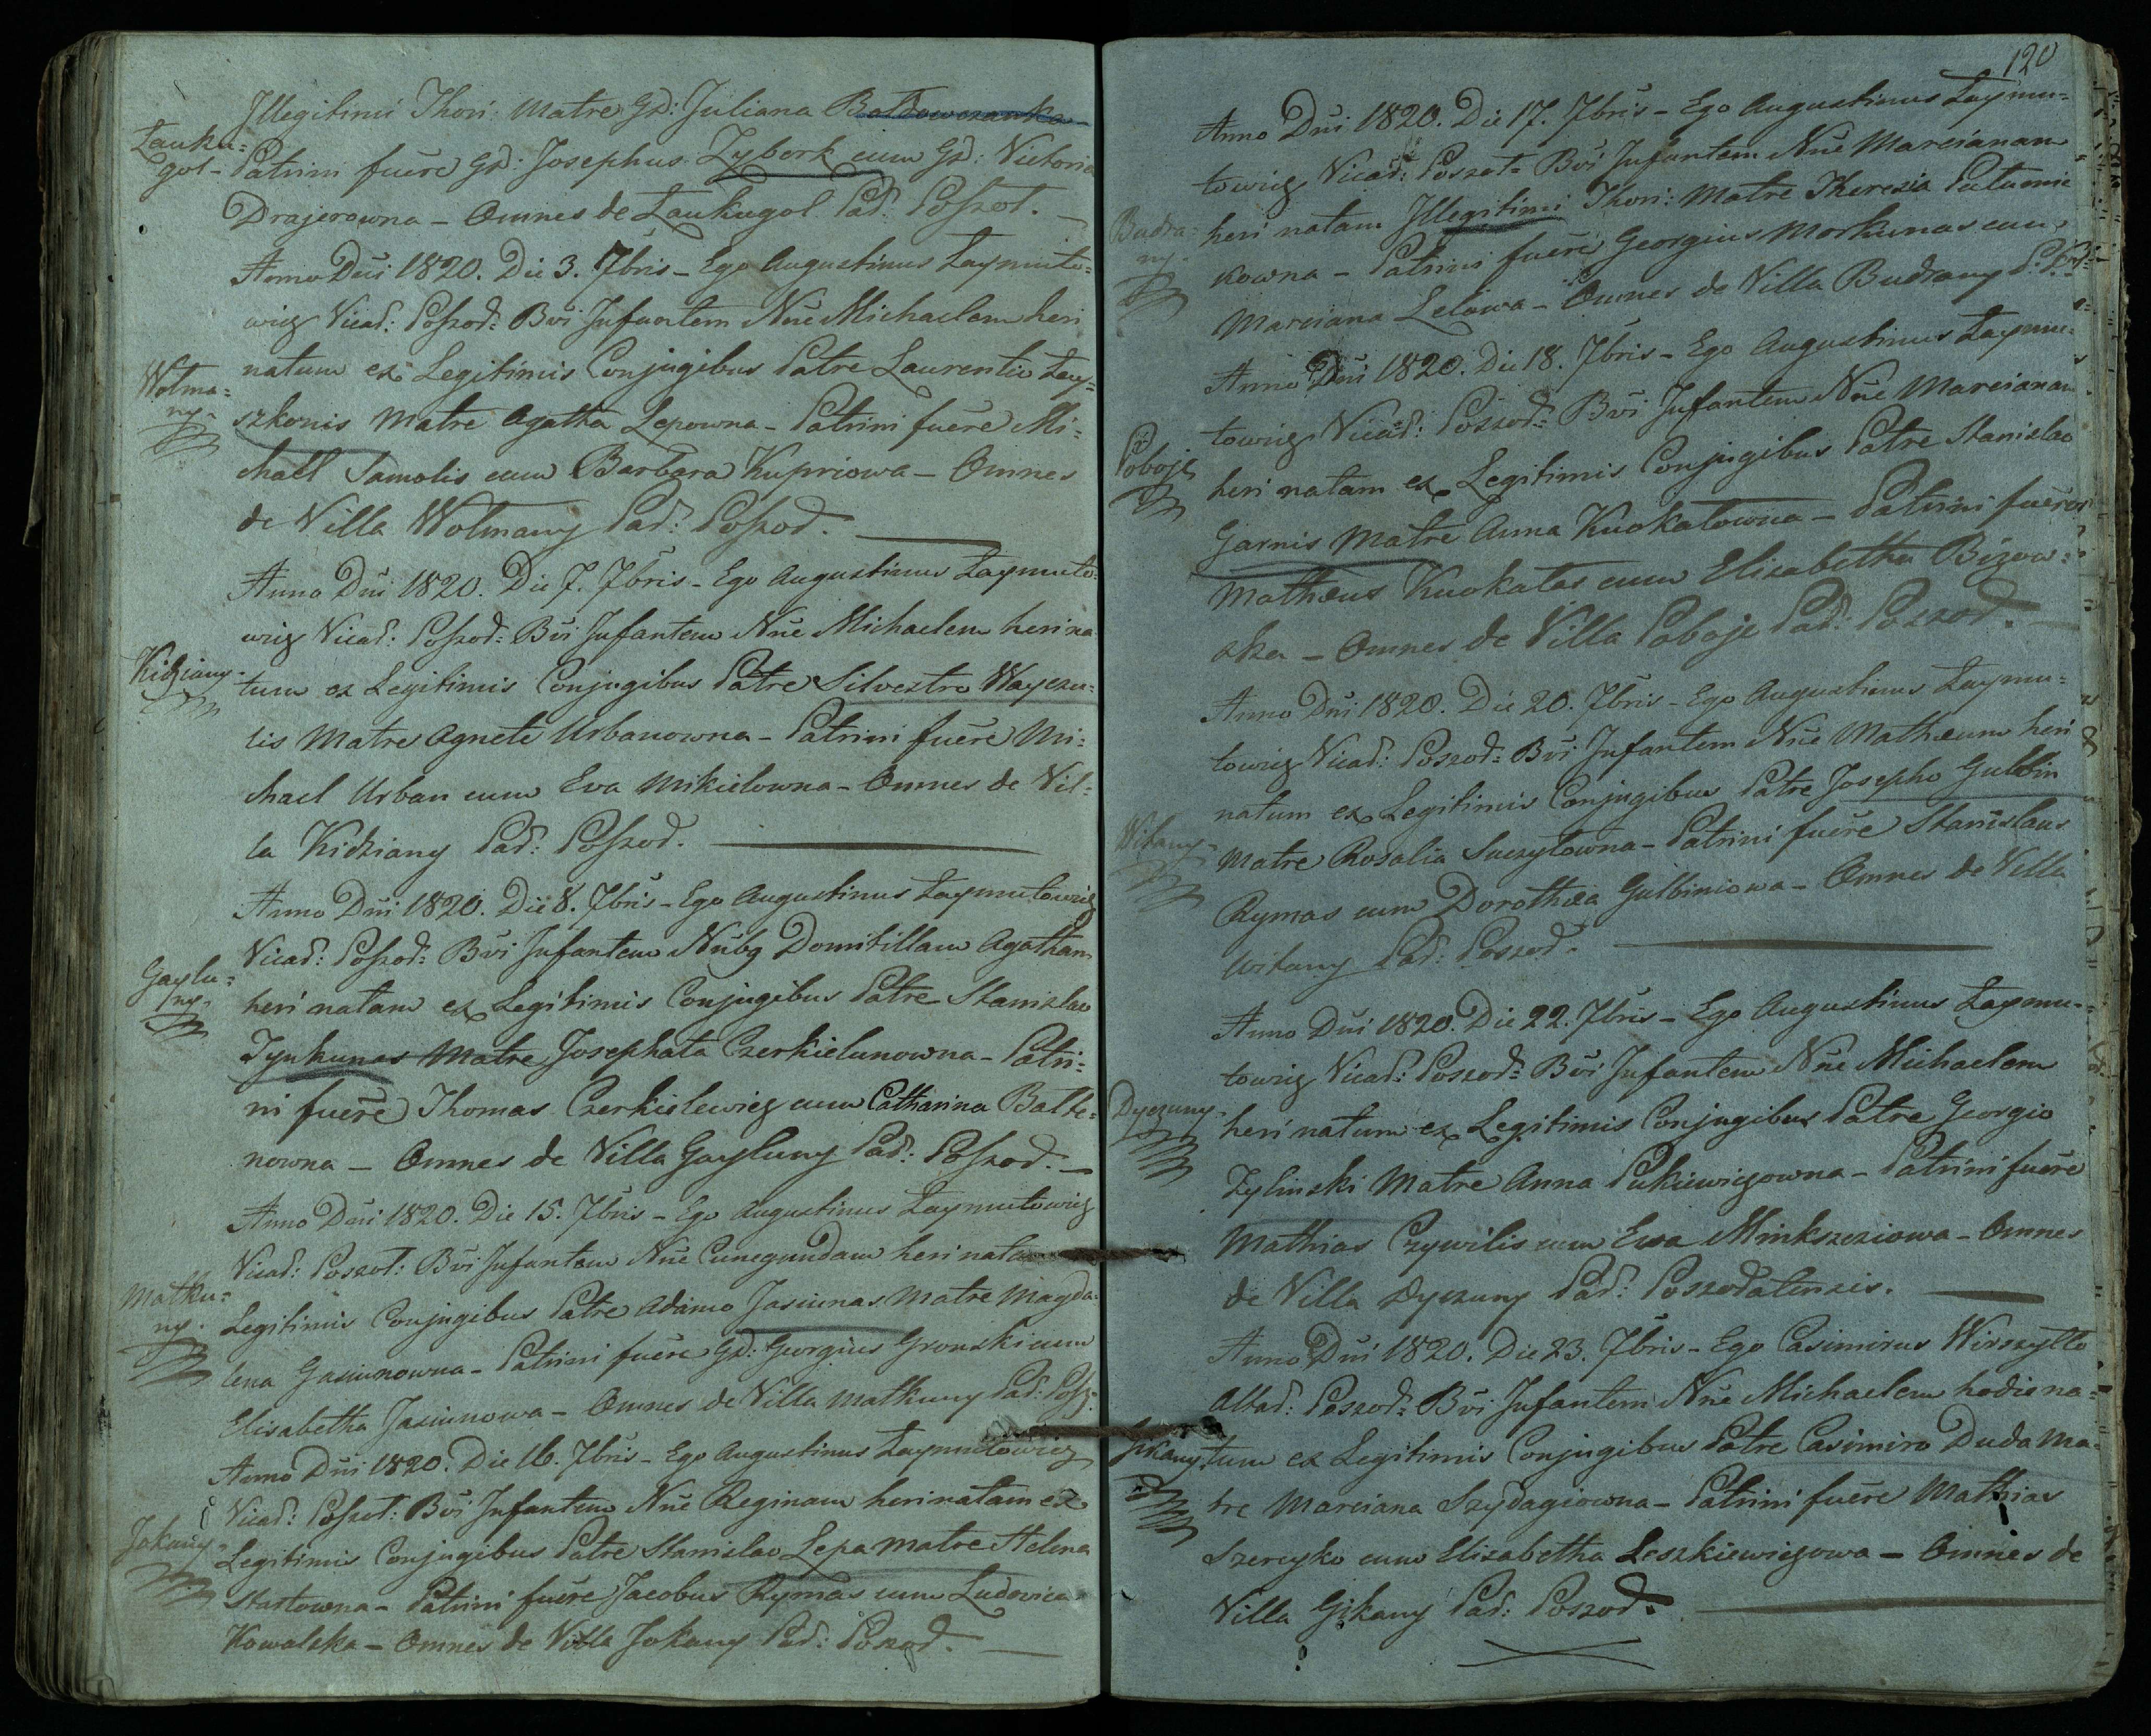 Illegitimi Thori: Matre Gd: Juliana
Łauku=
gol-
Patrini fuere Gd: Josephus Zybork cum Gd: Victoria
Drajerowna – Omnes de Łaukugol Pad: Poszot. —
Anno Dni 1820. Die 3. 7bris – Ego Augustinus Łaymuto=
wicz Vicad: Poszod: Bvi Infantem Nne Michaelem heri
Wolma=
ny-
natum ex Legitimis Conjugibus Patre Laurentio Łay=
szkonis Matre Agatha Lepowna – Patrini fuere Mi=
chael Samolis cum Barbara Kupriowa – Omnes
de Villa Wolmany Pad: Poszod. —
Anno Dni 1820. Die 7. 7bris – Ego Augustinus Łaymuto=
wicz Vicad: Poszod: Bvi Infantem Nne Michaelem heri na
Kidziany-
tum ex Legitimis Conjugibus Patre Silvestro Wayczu=
lis Matre Agnete Urbanowna – Patrini fuere Mi=
chael Urban cum Eva Mikielowna – Omnes de Vil=
la Kidziany Pad: Poszod. —
Anno Dni 1820. Die 8. 7bris – Ego Augustinus Łaymutowicz
Vicad: Poszod: Bvi Infantem Nnbg Domitillam Agatham
Gaylu=
ny-
heri natam ex Legitimis Conjugibus Patre Stanislao
Tynkunas Matre Josephata Czerkielunowna – Patri=
ni fuere Thomas Czerkielewicz cum Catharina Balte=
nowna – Omnes de Villa Gayluny Pad: Poszod. —
Anno Dni 1820. Die 15. 7bris – Ego Augustinus Łaymutowicz
Vicad: Poszot: Bvi Infantem Nne Cunegundam heri natam
Matku=
ny-
Legitimis Conjugibus Patre Adamo Jasiunas Matre Magda=
lena Gasiunowna – Patrini fuere Gd: Georgius Gronski cum
Elisabetha Jasiunowa – Omnes de Villa Matkuny Pad: Posz:
Anno Dni 1820. Die 16. 7bris – Ego Augustinus Łaymutowicz
Vicad: Poszot: Bvi Infantem Nne Reginam heri natam ex
Jokany-
Legitimis Conjugibus Patre Stanislao Lepa Matre Helena
Startowna – Patrini fuere Jacobus Rymas cum Ludovica
Kowalska – Omnes de Villa Jokany Pad: Poszod. —
120
Anno Dni 1820. Die 17. 7bris – Ego Augustinus Łaymu=
towicz Vicad: Poszot: Bvi Infantem Nne Marcianam
Budra=
ny-
heri natam Illegitimi Thori: Matre Theresia Putumie
kowna – Patrini fuere Georgius Morkunas cum
Marciana Lelowa – Omnes de Villa Budrany
Anno Dni 1820. Die 18. 7bris – Ego Augustinus Łaymu=
towicz Vicad: Poszod: Bvi Infantem Nne Marcianam
Poboje
heri natam ex Legitimis Conjugibus Patre Stanislao
Garnis Matre Anna Kuokatowna – Patrini fuere
Mathæus Kuokatas cum Elisabetha Bizow=
ska – Omnes de Villa Poboje Pad: Poszod. —
Anno Dni 1820. Die 20. 7bris – Ego Augustinus Łaymu=
towicz Vicad: Poszod: Bvi Infantem Nne Mathæum heri
natum ex Legitimis Conjugibus Patre Josepho Gulbin
Witany-
Matre Rosalia Suszytowna – Patrini fuere Stanislaus
Rymas cum Dorothæa Gulbiniowa – Omnes de Villa
Witany Pad: Poszod. —
Anno Dni 1820. Die 22. 7bris – Ego Augustinus Łaymu=
towicz Vicad: Poszod: Bvi Infantem Nne Michaelem
Dyczuny-
heri natum ex Legitimis Conjugibus Patre Georgio
Zylinski Matre Anna Pukiewiczowna – Patrini fuere
Mathias Czywilis cum Ewa Minkszeziowa – Omnes
de Villa Dyczuny Pad: Poszodatensis. —
Anno Dni 1820. Die 23. 7bris – Ego Casimirus Wirszyłło
Altad: Poszod: Bvi Infantem Nne Michaelem hodie na=
Gikany
tum ex Legitimis Conjugibus Patre Casimiro Duda Ma=
tre Marciana Szydagiowna – Patrini fuere Mathias
Szereyko cum Elisabetha Leszkiewiczowa – Omnes de
Villa Gikany Pad: Poszod. —